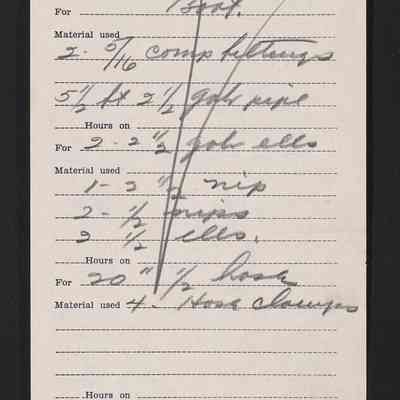 For Boat.
Material used
2- 5/16 comp fittings
5 1/2 ft 2 1/2 galv pipe
Hours on
For 2- 2 1/2 galv ells
Material used
1- 2 1/2 nip
2- 1/2 nips
2 1/2 ells.
Hours on
For 20" 1/2 hose
Material used 4- Hose clamps
Hours on